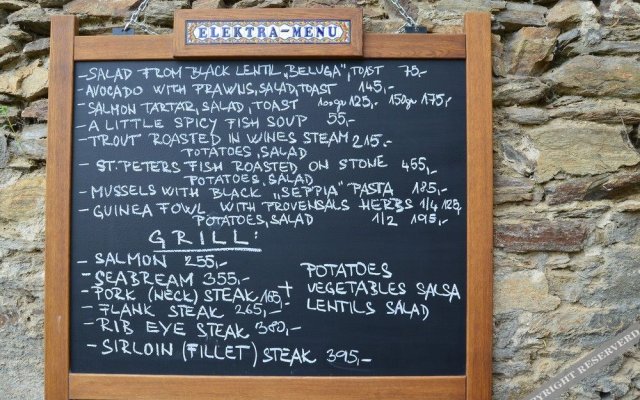 ELEKTRA-MENU
- SALAD FROM BLACK LENTIL „BELUGA", TOAST 75,-
- AVOCADO WITH PRAWNS, SALAD, TOAST 145,-
- SALMON TARTAR, SALAD, TOAST 100gr 125,- 150gr 175,-
- A LITTLE SPICY FISH SOUP 55,-
- TROUT ROASTED IN WINES STEAM 215.-
POTATOES, SALAD
- ST. PETERS FISH ROASTED ON STONE 455,-
POTATOES, SALAD
- MUSSELS WITH BLACK „SEPPIA" PASTA 185,-
- GUINEA FOWL WITH PROVENSALS HERBS 1/4 125,
POTATOES, SALAD 1/2 195,-
GRILL:
- SALMON 255,-
- SEABREAM 355,-
- PORK (NECK) STEAK 165,-
- FLANK STEAK 265,-
- RIB EYE STEAK 380,-
- SIRLOIN (FILLET) STEAK 395,-
+ POTATOES
VEGETABLES SALSA
LENTILS SALAD
COPYRIGHT RESERVED